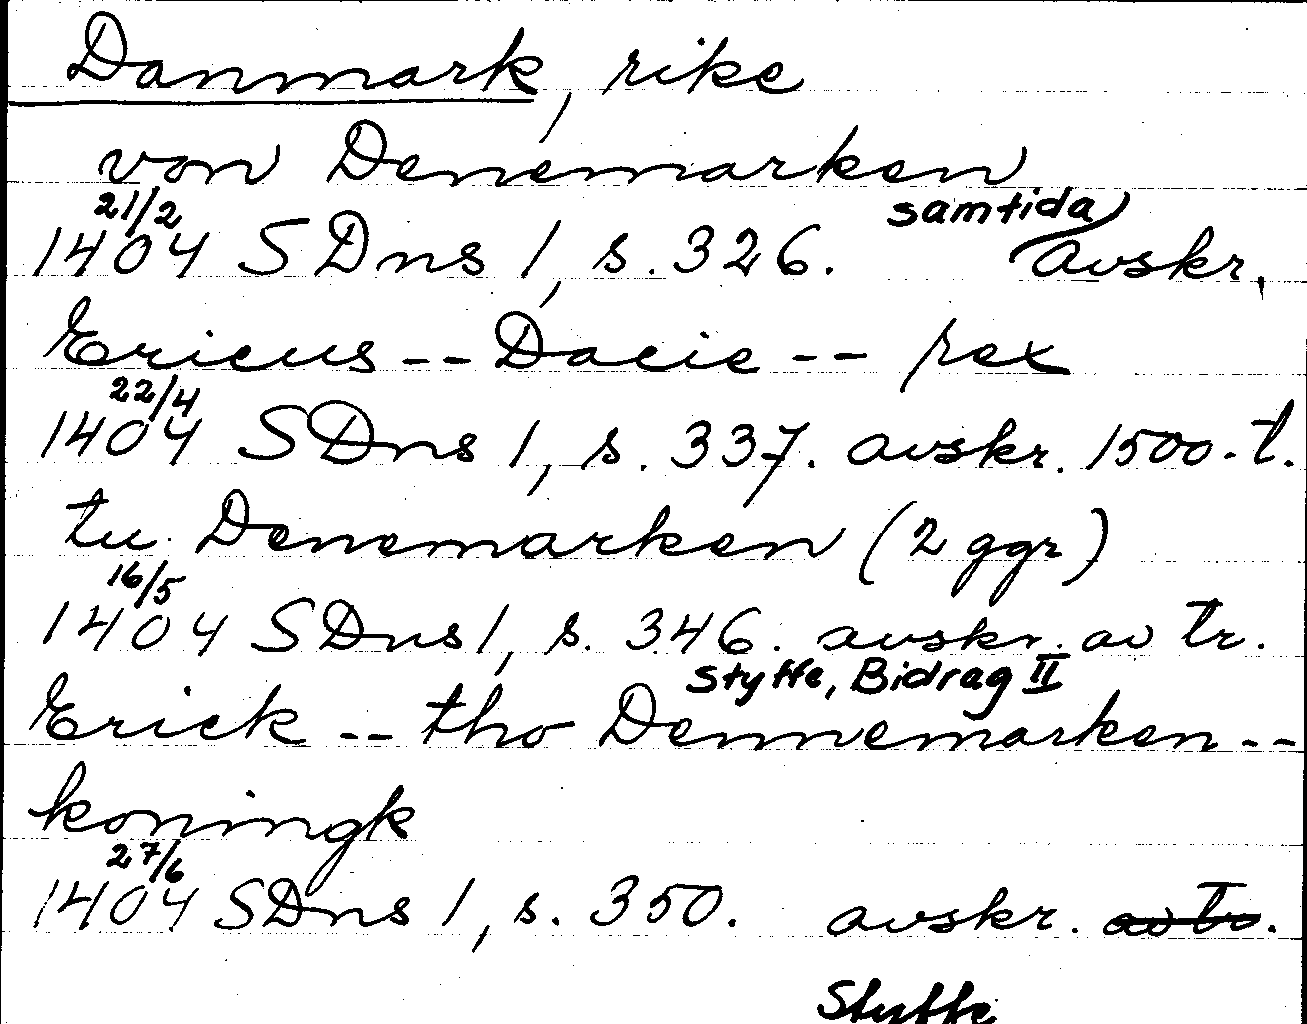 Danmark, rike
von Denemarken
21/2 samtida
1404 SDns 1, s. 326. avskr.
Ericus -- Dacie -- rex
22/4
1404 SDns 1, s. 337. avskr. 1500-t.
tu Denemarken (2 ggr)
16/5
1404 SDns 1, s. 346. avskr. av tr.
Styffe, Bidrag II
Erick -- tho Dennemarken --
koningk
27/6
1404 SDns 1, s. 350. avskr. av tr.
Styffe